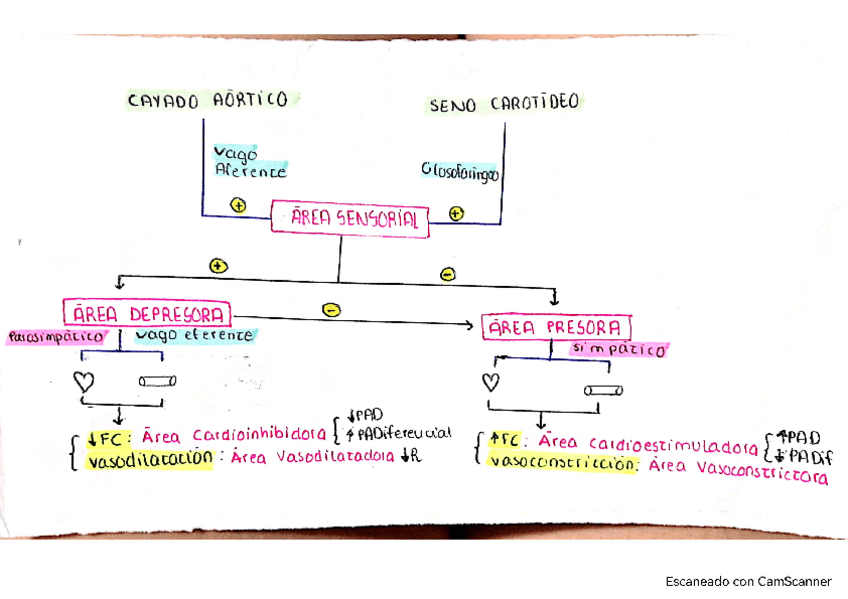 CAYADO AÓRTICO
SENO CAROTÍDEO
Vago
Aferente
Glosofaríngeo
+
+
ÁREA SENSORIAL
+
−
ÁREA DEPRESORA
−
ÁREA PRESORA
Parasimpático
vago eferente
simpático
↓FC: Área Cardioinhibidora
↓PAD
↑PADiferencial
vasodilatación: Área Vasodilatadora ↓R
↑FC: Área cardioestimuladora
↑PAD
↓PADif
vasoconstricción: Área Vasoconstrictora
Escaneado con CamScanner